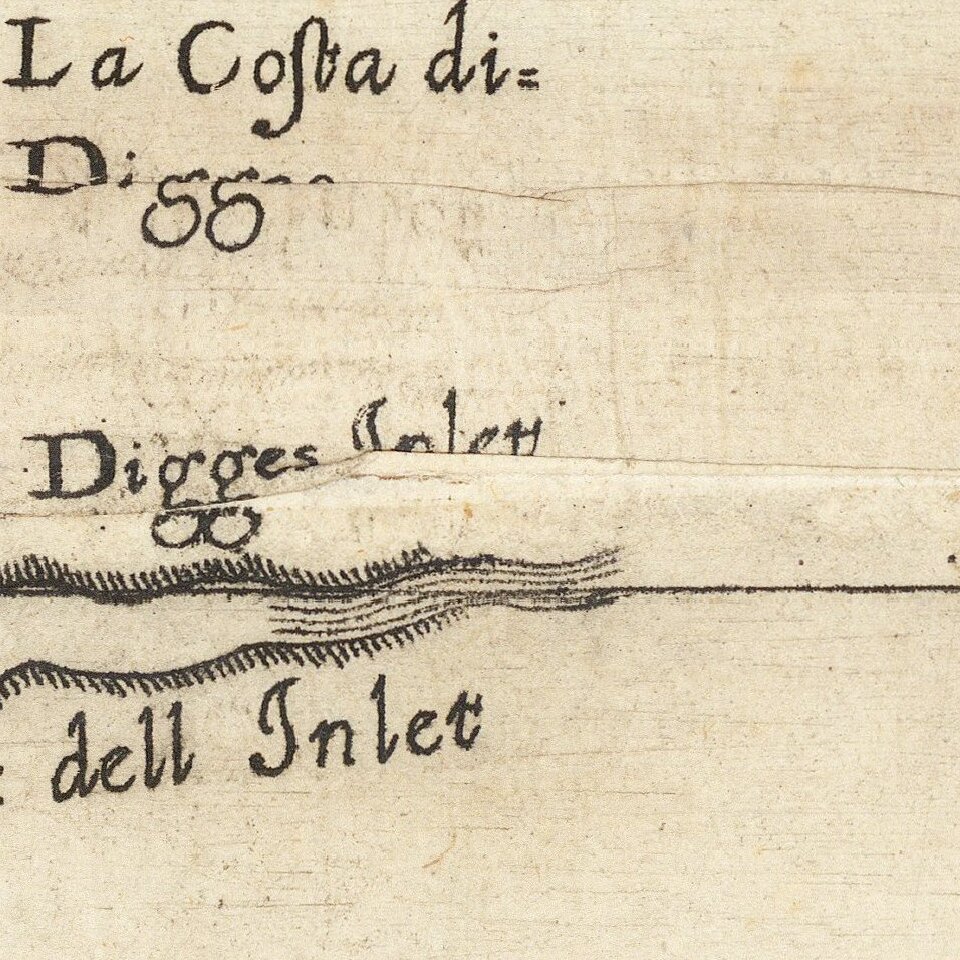 La Coſta di=
Digges
Digges Inlet
: dell Inlet